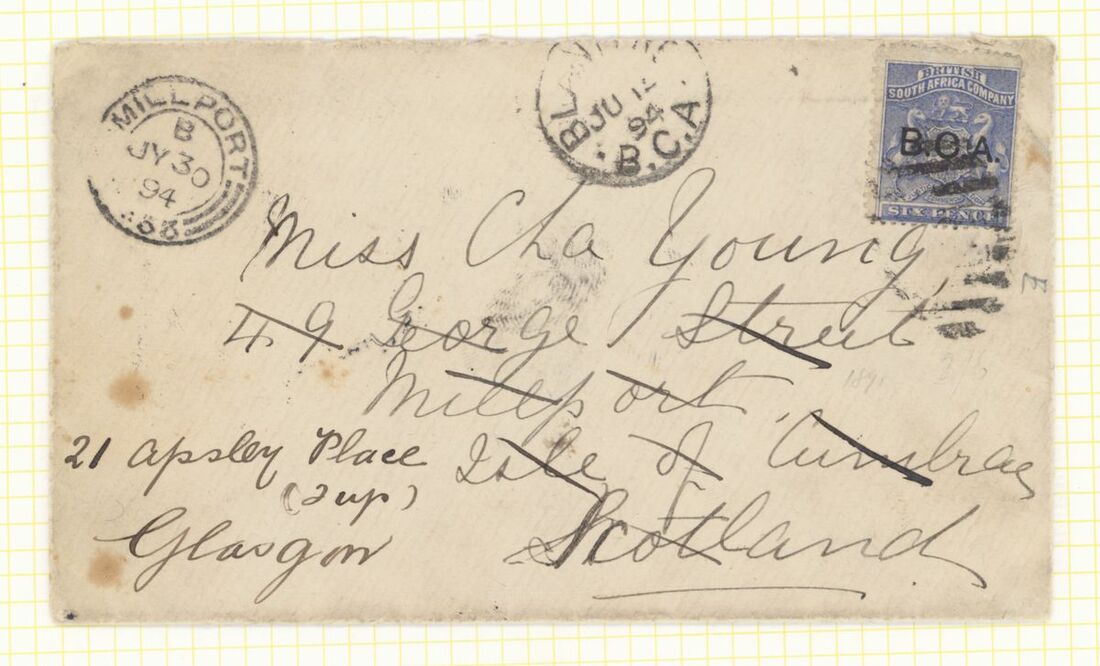 MILLPORT
B
JY 30
94
.53.
JU 12
94
B.C.A
BRITISH
SOUTH AFRICA COMPANY
B.C.A.
SIX PENCE
Miss Cha Young,
49 George Street
Millport,
Isle of Cumbrae
Scotland
21 Apsley Place
(2 up)
Glasgow
1891